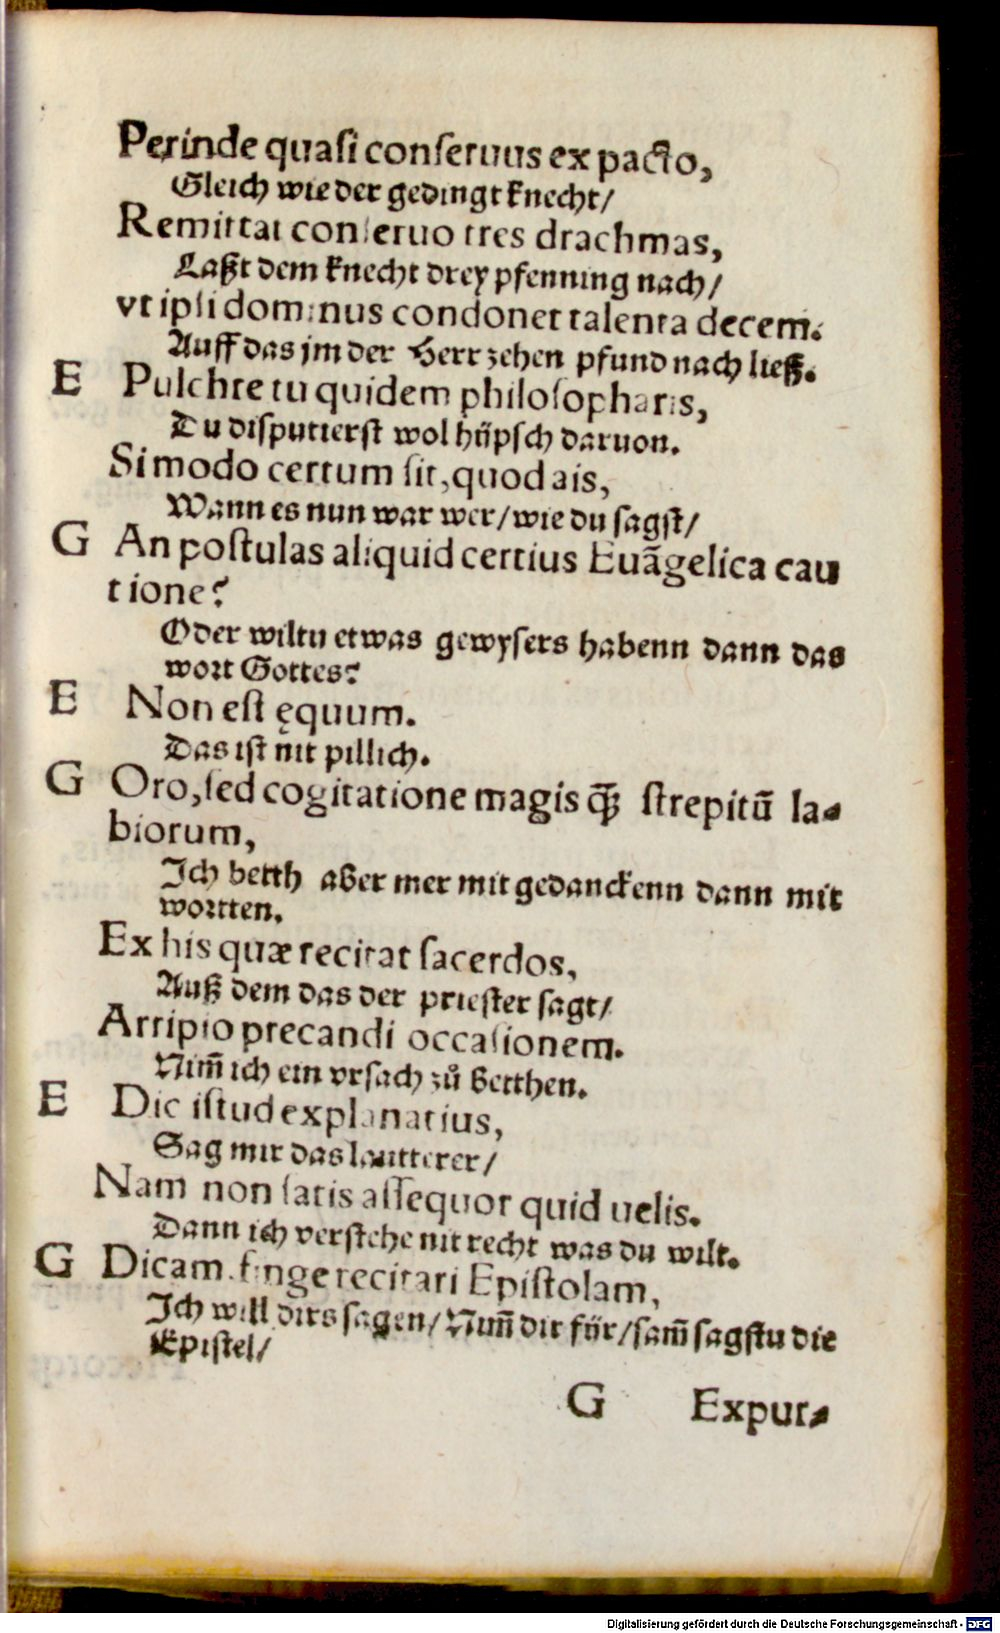 Perinde quasi conseruus ex pacto,
Gleich wie der gedingt knecht/
Remittat conseruo tres drachmas,
Laßt dem knecht drey pfenning nach/
vt ipsi dominus condonet talenta decem.
Auff das jm der Herr zehen pfund nach ließ.
E Pulchre tu quidem philosopharis,
Du disputierst wol hüpsch daruon.
Si modo certum sit, quod ais,
Wann es nun war wer/wie du sagst/
G An postulas aliquid certius Euãgelica cau
tione?
Oder wiltu etwas gewysers habenn dann das
wort Gottes?
E Non est ęquum.
Das ist nit pillich.
G Oro, sed cogitatione magis q̃ȝ strepitũ la⸗
biorum,
Ich betth aber mer mit gedanckenn dann mit
wortten.
Ex his quæ recitat sacerdos,
Auß dem das der priester sagt/
Arripio precandi occasionem.
Nim̃ ich ein vrsach zů betthen.
E Dic istud explanatius,
Sag mir das lautterer/
Nam non satis assequor quid uelis.
Dann ich verstehe nit recht was du wilt.
G Dicam. finge recitari Epistolam,
Ich will dirs sagen/Nim̃ dir für/sam̃ sagstu die
Epistel/
G Expur⸗
Digitalisierung gefördert durch die Deutsche Forschungsgemeinschaft - DFG